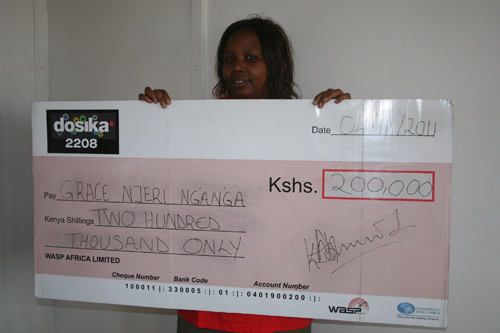 dosika
2208
Date 04/11/2011
Pay GRACE NJERI NG'ANG'A
Kshs. 200,000
Kenya Shillings TWO HUNDRED
THOUSAND ONLY
WASP AFRICA LIMITED
Cheque Number Bank Code Account Number
100011 |: 330005 :|: 01 :|: 0401900200 :|:
WASP